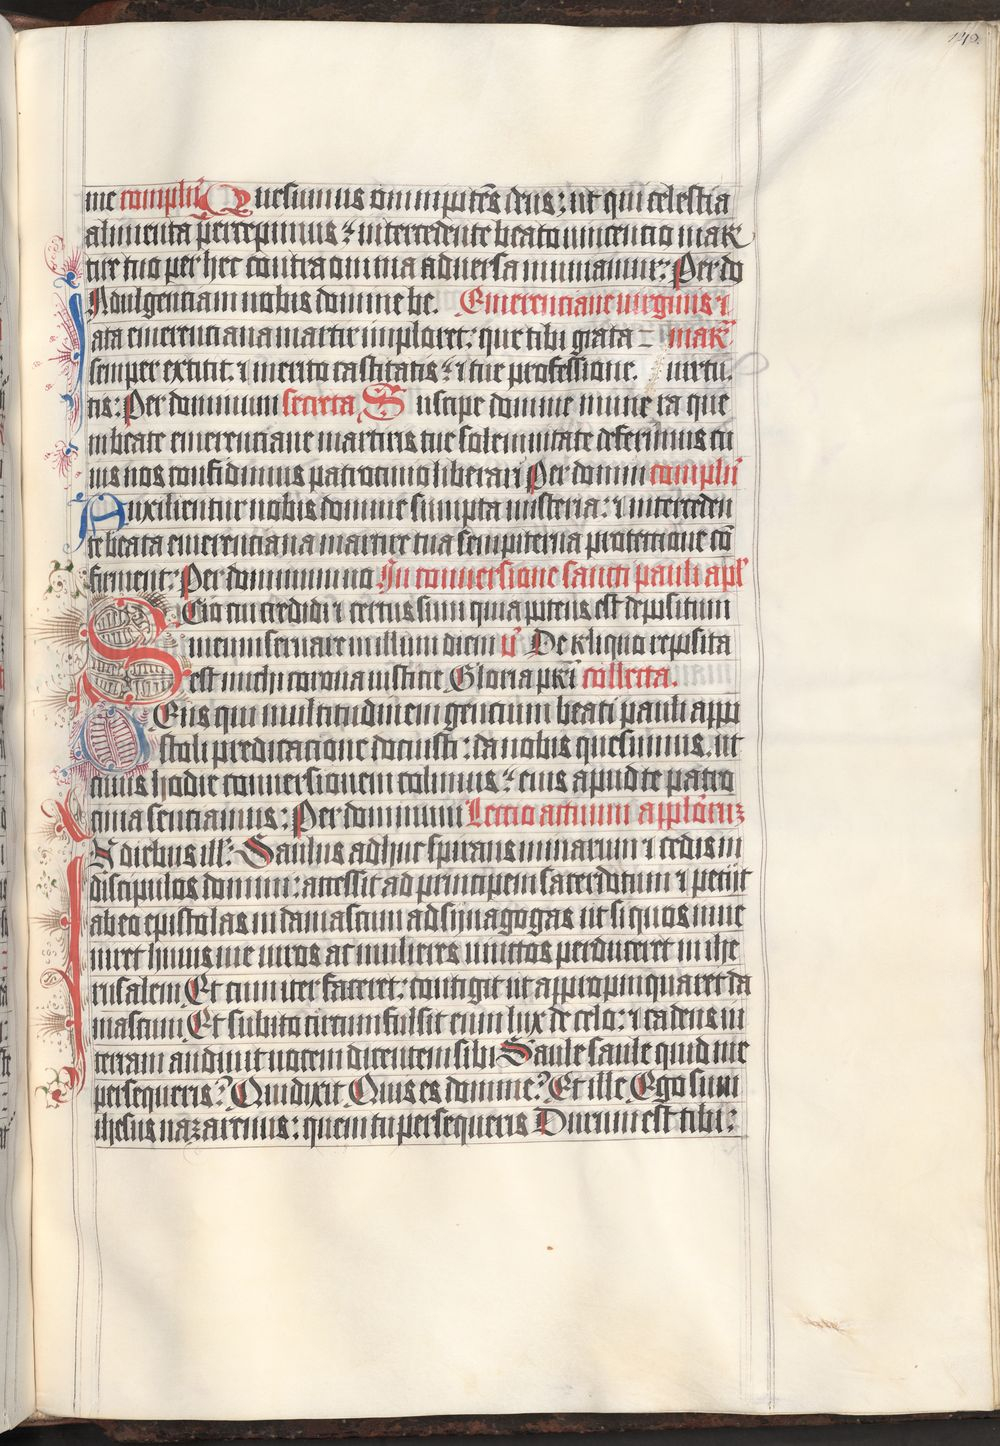 142.
me complñ Quesumus omnipotẽs deus: ut qui celestia
alimenta percepimus: intercedente beato vincencio mar
tire tuo per hec contra omnia adversa muniamur: Per do
Indulgenciam nobis domine be. Emerenciane virginis ⁊
ata emerenciana martir imploret: que tibi grata mar̃
semper extitit. ⁊ merito castitatis: ⁊ tue professione. virtu.
tis: Per dominum secreta Suscipe domine munera que
in beate emerenciane martiris tue solemnitate deferimus cu
ius nos confidimus patrocinio liberari Per domin complñ
Auxilientur nobis domine sumpta misteria: ⁊ interceden
te beata emerenciana martire tua sempiterna protectione cõ
firment: Per dominum no In conversione sancti pauli apl
Scio cui credidi ⁊ certus sum quia potens est depositum
meum servare in illum diem v̉ De reliquo reposita
est michi corona iusticie Gloria pr̃i collecta.
Deus qui multitudinem gencium beati pauli appo
stoli predicacione docuisti: da nobis quesumus. ut
cuius hodie conversionem colimus: eius apud te patro
cinia senciamus: Per dominum Lectio actuum applõruꝫ
In diebus ill̃: Saulus adhuc spirans minarum ⁊ cedis in
discipulos domini: accessit ad principem sacerdotum ⁊ petijt
ab eo epistolas in damascum ad sijnagogas ut si quos inve
niret huius vie viros ac mulieres vinctos perduceret in ihe
rusalem Et cum iter faceret: contigit ut appropinquaret da
masco Et subito circumfulsit eum lux de celo: ⁊ cadens in
terram audiuit vocem dicentem sibi Saule saule quid me
persequeris? Qui dixit Quis es domine? Et ille Ego sum
ihesus nazarenus: quem tu persequeris Durum est tibi: